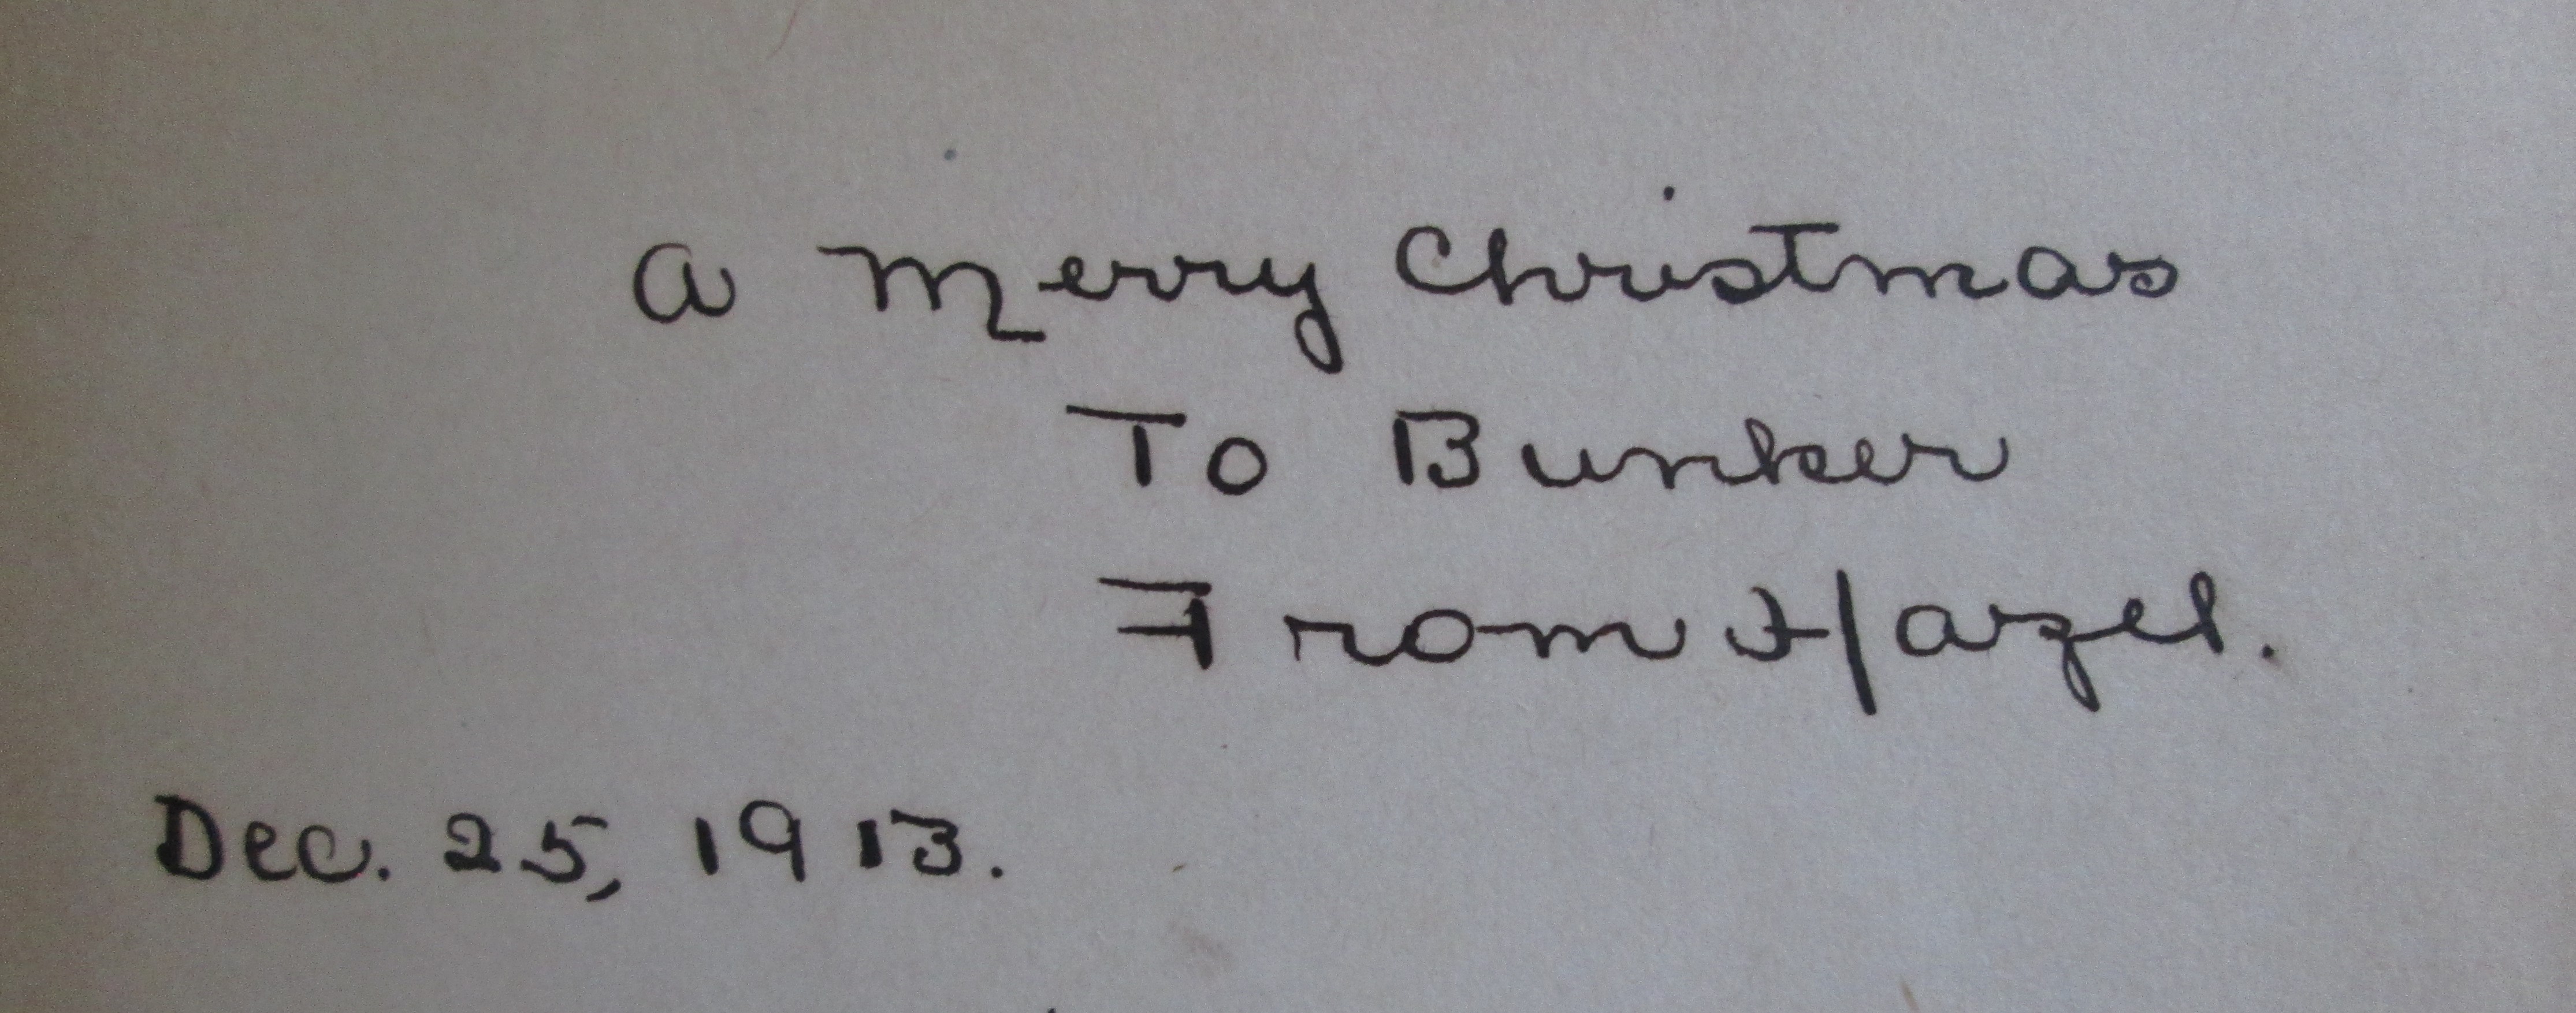 A Merry Christmas
To Bunker
From Hazel.
Dec. 25, 1913.